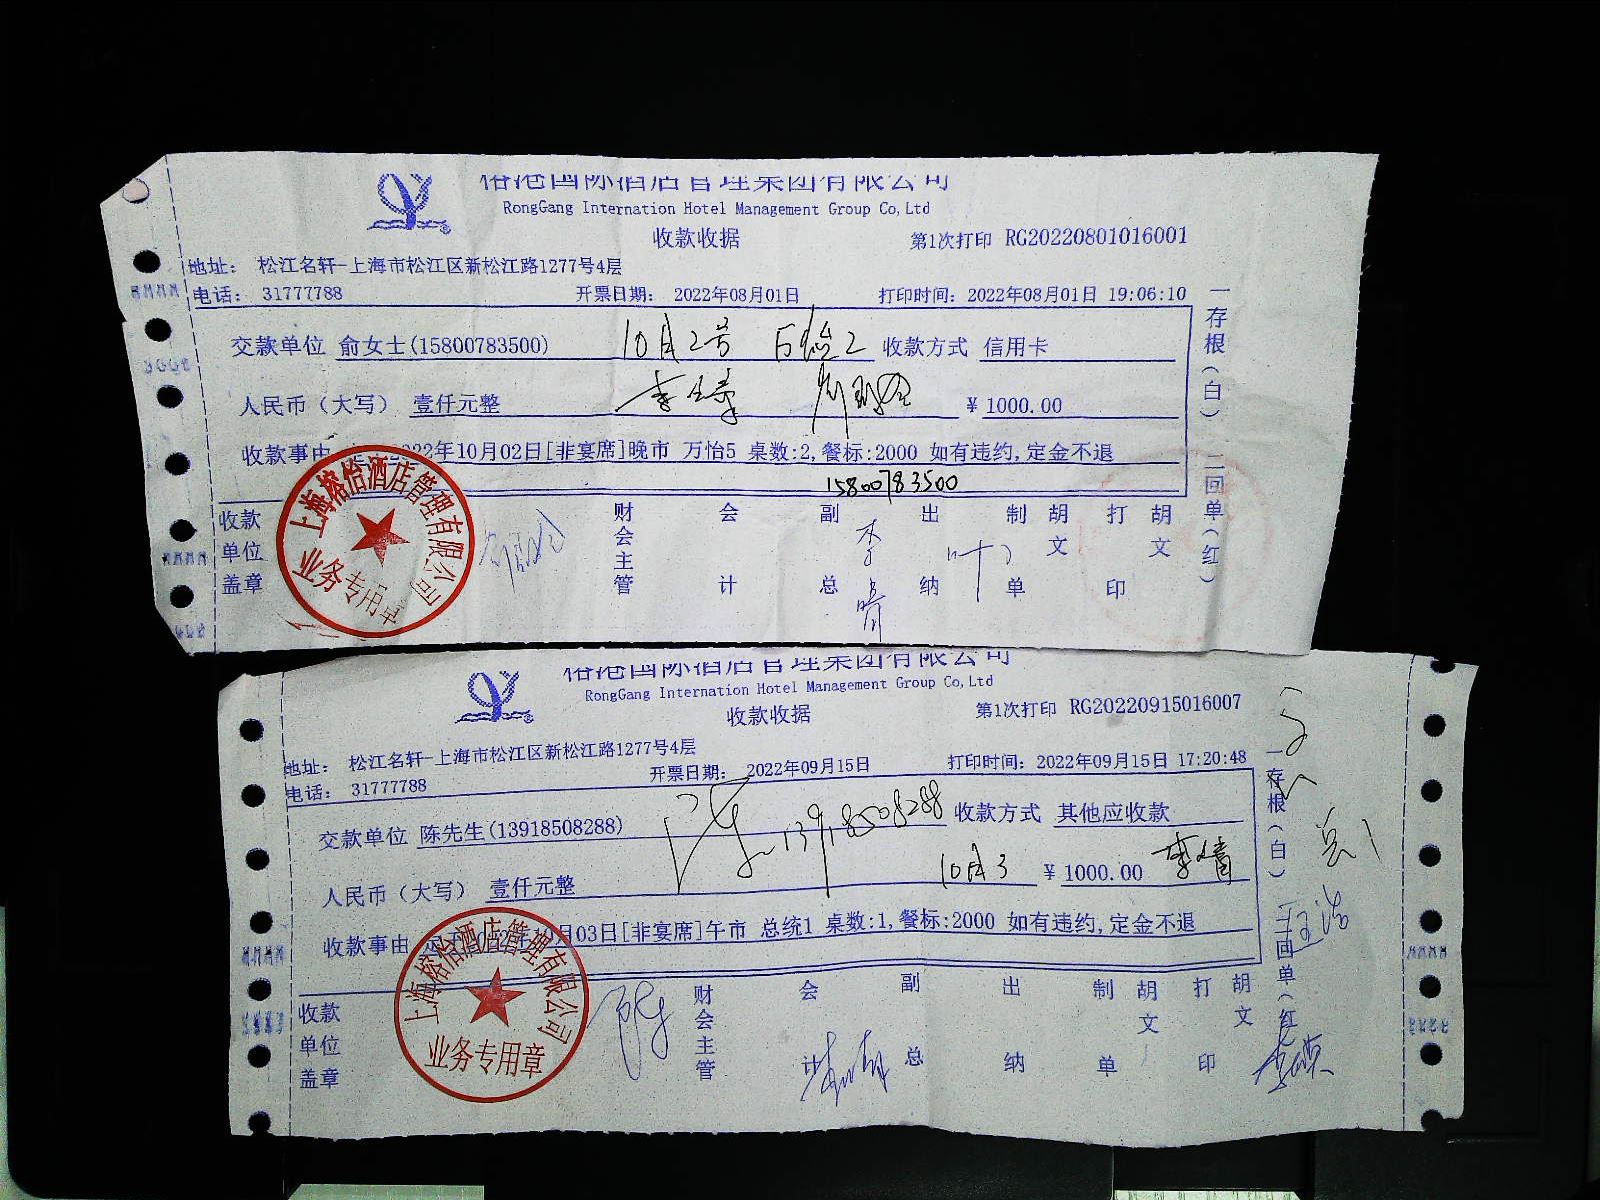 榕港国际酒店管理集团有限公司
RongGang Internation Hotel Management Group Co,Ltd
收款收据
第1次打印 RG20220801016001
地址: 松江名轩-上海市松江区新松江路1277号4层
电话: 31777788 开票日期: 2022年08月01日 打印时间: 2022年08月01日 19:06:10
交款单位 俞女士(15800783500) 10月2号 万怡2 收款方式 信用卡
人民币（大写） 壹仟元整 ¥ 1000.00
收款事由 2022年10月02日[非宴席]晚市 万怡5 桌数:2,餐标:2000 如有违约,定金不退
15800783500
收款单位盖章 财会主管 会计 副总 李 出纳 叶 制单 胡文 打印 胡文
上海榕怡酒店管理有限公司
业务专用章
一存根(白) 二回单(红)
榕港国际酒店管理集团有限公司
RongGang Internation Hotel Management Group Co,Ltd
收款收据
第1次打印 RG20220915016007
地址: 松江名轩-上海市松江区新松江路1277号4层
电话: 31777788 开票日期: 2022年09月15日 打印时间: 2022年09月15日 17:20:48
交款单位 陈先生(13918508288) 13918508288 收款方式 其他应收款
人民币（大写） 壹仟元整 10月3 ¥ 1000.00 李倩
收款事由 03日[非宴席]午市 总统1 桌数:1,餐标:2000 如有违约,定金不退
收款单位盖章 财会主管 会计 副总 出纳 制单 胡文 打印 胡文
上海榕怡酒店管理有限公司
业务专用章
一存根(白) 二回单(红